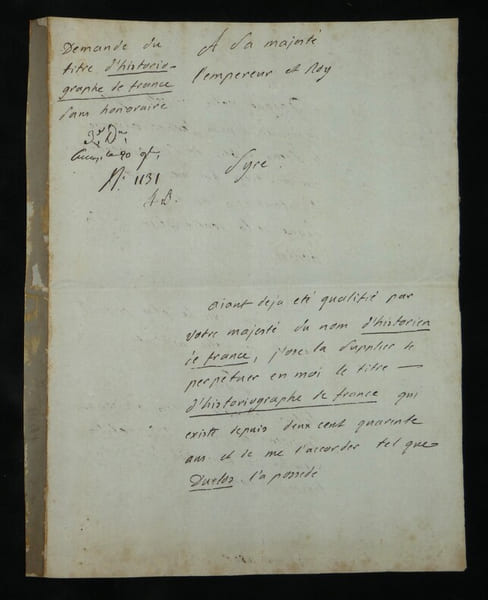 Demande du
titre d'historio-
graphe de france
sans honoraire
N.° 1131
A sa majesté
l'empereur et Roy
Syre.
aiant deja eté qualifié par
votre majesté du nom d'historien
de france, j'ose la supplier de
perpétuer en moi le titre —
d'historiographe de france qui
existe depuis deux cent quarente
ans et de me l'accorder tel que
Duclos l'a possédé